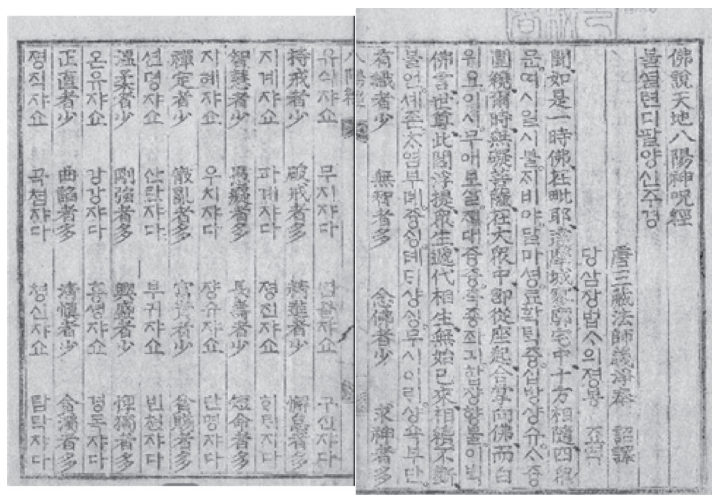 佛說天地八陽神呪經
불셜텬디팔양신주경
唐三藏法師義淨奉 詔譯
당삼장법ᄉᆞ의졍봉 죠역
聞如是一時佛在毗耶達摩城寥廓宅中十方相隨四眾
문여시일시불ᄌᆡ비야달마셩료확ᄐᆡᆨ즁십방샹슈ᄉᆞ즁
圍繞爾時無礙菩薩在大眾中卽從座起合掌向佛而白
위요이시무애보살ᄌᆡ대즁즁즉죵좌긔합쟝향불이ᄇᆡᆨ
佛言世尊此閻浮提眾生遞代相生無始已來相續不斷
불언셰존ᄎᆞ염부뎨즁ᄉᆡᆼ톄ᄃᆡ샹ᄉᆡᆼ무시이ᄅᆡ샹쇽부단
有識者少 無智者多 念佛者少 求神者多
八陽經
유식쟈쇼 무지쟈다 념불쟈쇼 구신쟈다
持戒者少 破戒者多 精進者少 懈怠者多
지계쟈쇼 파계쟈다 졍진쟈쇼 ᄒᆡᄐᆡ쟈다
智慧者少 愚癡者多 長壽者少 短命者多
지혜쟈쇼 우치쟈다 쟝슈쟈쇼 단명쟈다
禪定者少 散亂者多 富貴者少 貧賤者多
션뎡쟈쇼 산란쟈다 부귀쟈쇼 빈쳔쟈다
溫柔者少 剛強者多 興盛者少 惸獨者多
온유쟈쇼 강강쟈다 흥셩쟈쇼 경독쟈다
正直者少 曲諂者多 清愼者少 貪濁者多
졍직쟈쇼 곡쳠쟈다 쳥신쟈쇼 탐탁쟈다